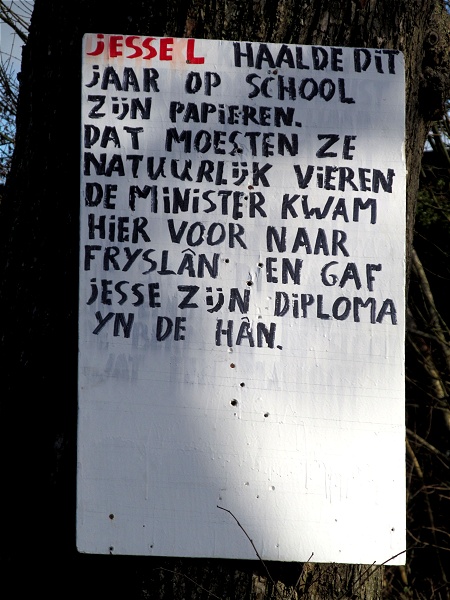 JESSE L HAALDE DIT
JAAR OP SCHOOL
ZIJN PAPIEREN.
DAT MOESTEN ZE
NATUURLIJK VIEREN
DE MINISTER KWAM
HIER VOOR NAAR
FRYSLÂN EN GAF
JESSE ZIJN DIPLOMA
YN DE HÂN.